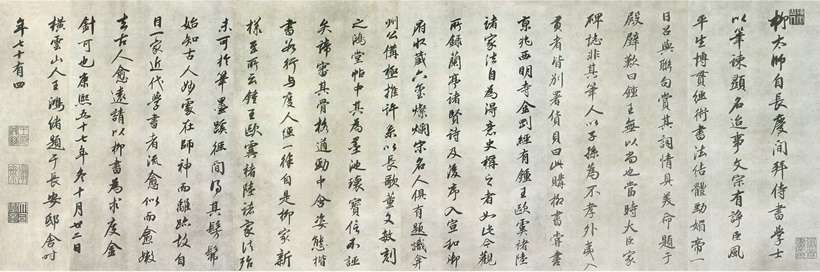 柳太師自長慶間拜侍書學士
以筆諫顯名迨事文宗有諍臣風
平生博貫經術書法結體勁媚帝一
日召與聯句賞其詞情具美命題于
殿壁歎曰鍾王無以尚也當時大臣家
碑誌非其筆人以子孫為不孝外夷入
貢者皆別署貨貝曰此購柳書嘗書
京兆西明寺金剛經有鍾王歐虞褚陸
諸家法自為得意史稱之者如此今觀
所錄蘭亭諸賢詩及後序入宣和御
府收藏六條燦爛宋名人俱有題識弇
州公備極推許系以長歌董文敏刻
之鴻堂帖中其為墨池瓌寶信不誣
矣諦審其骨格遒勁中含姿態楷
書如行與度人經一種自是柳家新
樣至所云鍾王歐虞褚陸諸家法殆
未可於筆墨蹊徑間得其髣髴
始知古人妙處在師神而離跡故自
一家近代學書者流愈似而愈嫩
去古人愈遠請以柳書為求度金
針可也康熙五十七年冬十月廿二日
橫雲山人王鴻緒題于長安邸舍時
年七十有四